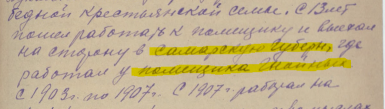 бедной крестьянской семье. С 13 лет
пошел работать к помещику и выехал
на сторону в Самарскую губерн. где
работал у помещика
с 1903г. по 1907г. С 1907г. работал на